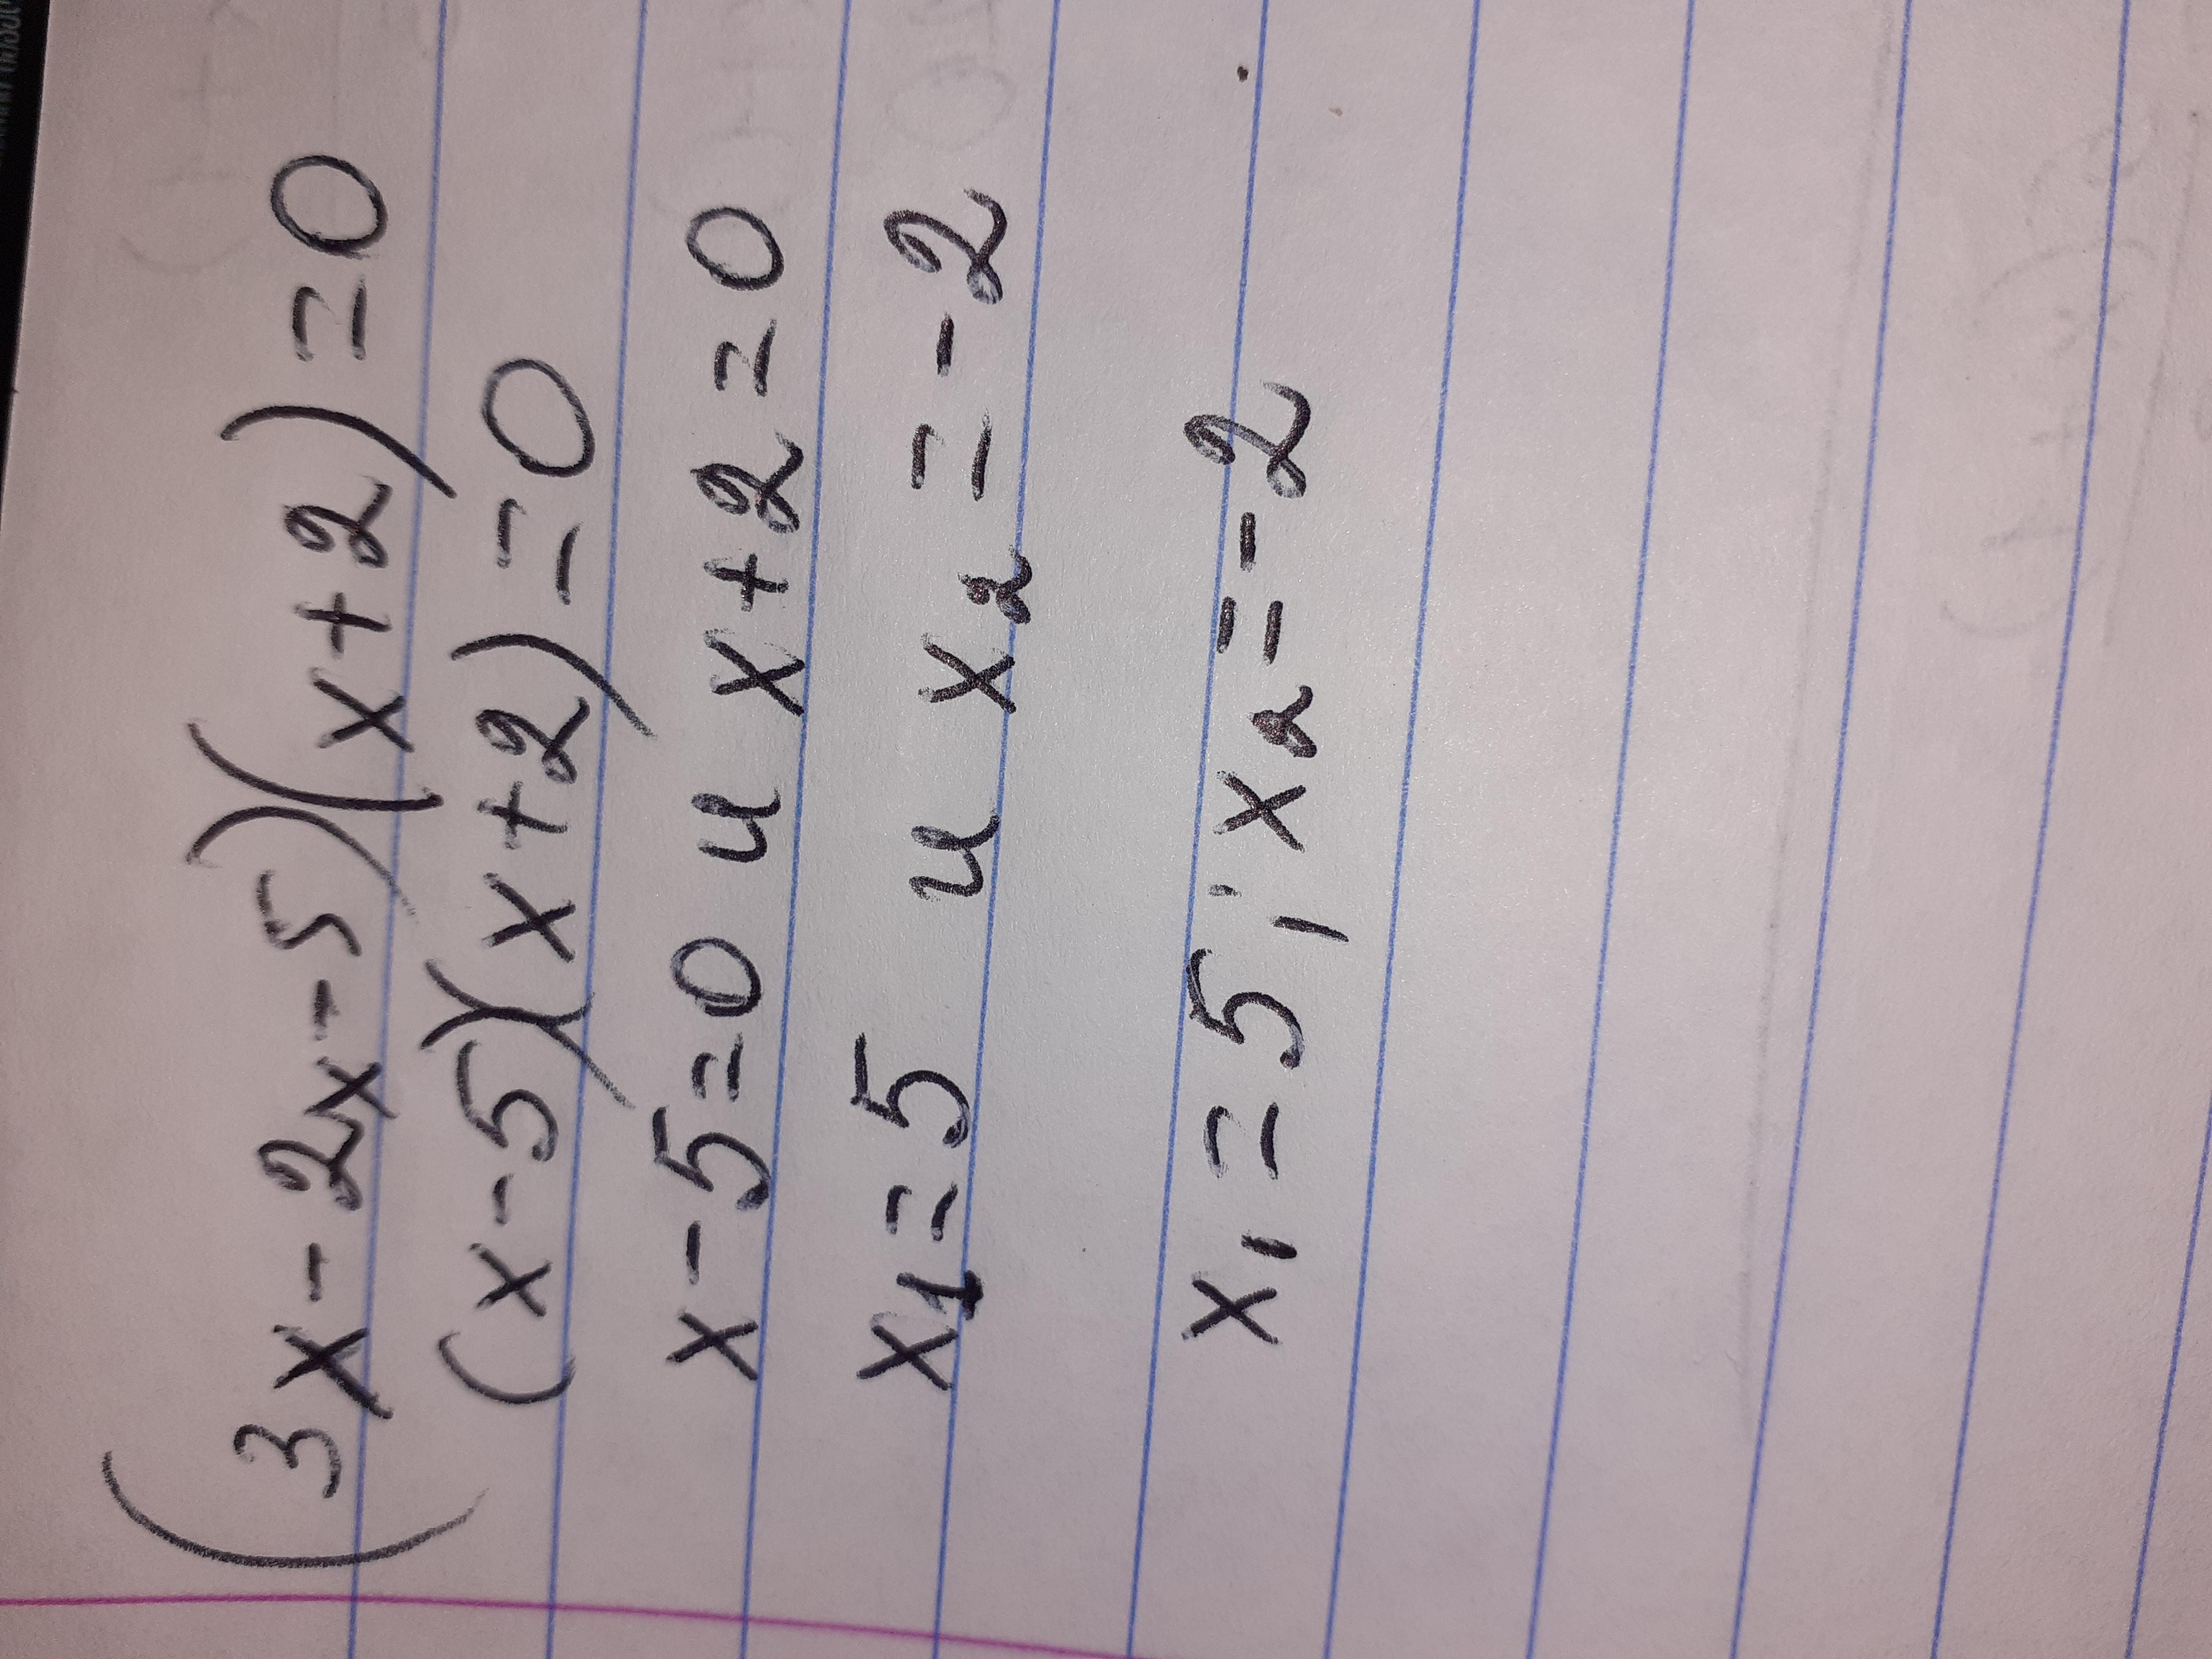 (3x-2x-5)(x+2)=0
(x-5)(x+2)=0
x-5=0 и x+2=0
x₁=5 и x₂=-2
x₁=5, x₂=-2